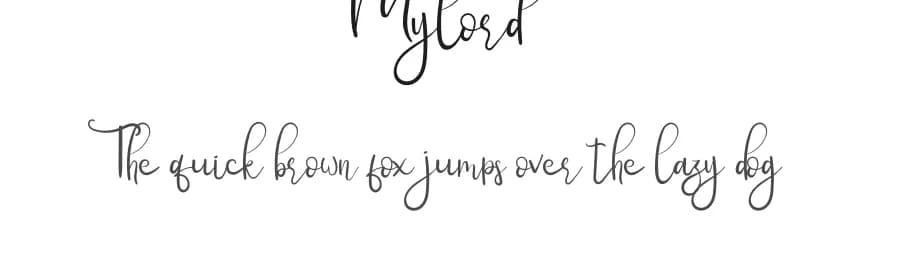 Mylord
The quick brown fox jumps over the lazy dog